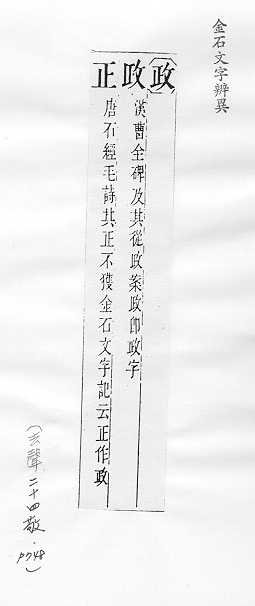 金石文字辨異
(政)政正
漢曹全碑及其從政案政即政字
唐石經毛詩其正不獲金石文字記云正作政
(去聲二十四敬.P748)